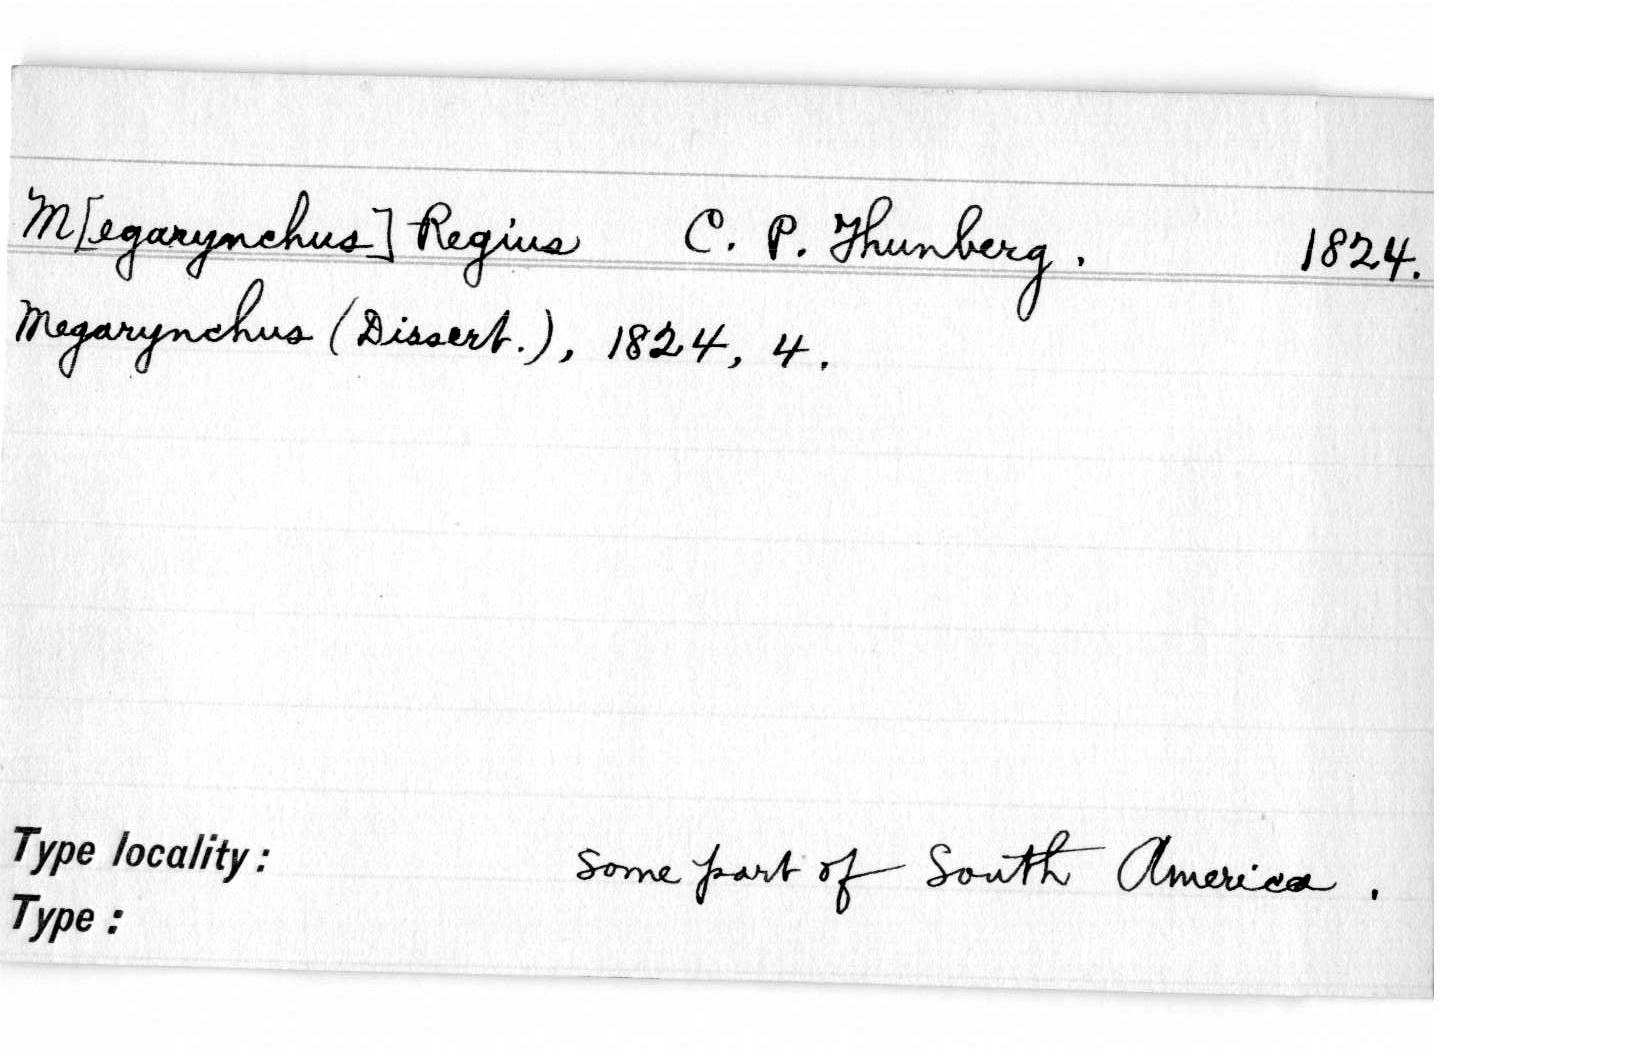 M[egarynchus] Regius C. P. Thunberg. 1824.
Megarynchus (Dissert.), 1824, 4.
Type locality: some part of South America.
Type: